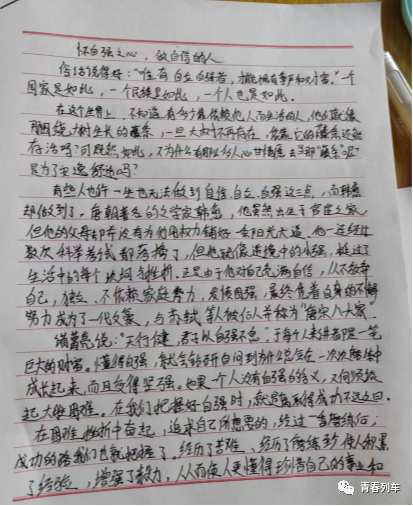 怀自强之心，做自信的人
俗话说得好："唯有自立自强者，才能拥有事业和财富。"一个
国家是如此，一个民族是如此，一个人也是如此。
在这个世界上，不知道有多少靠依赖他人而生活的人，他们就像
围绕大树生长的藤条，一旦大树不再存在，依靠它的藤条还能
存活吗？可既然如此，又为什么有那么多人心甘情愿去当那"藤条"呢？
是为了安逸舒适吗？
有些人也许一生也无法做到自信、自立、自强这三点，而韩愈
却做到了。唐朝著名的文学家韩愈，他虽然出生于官宦之家，
但他的父母却并没有为他用权力铺好一条阳光大道，他一连经过
数次科举考试都落榜了，但他就像逆境中的小强，挺过了
生活中的每个坎坷与挫折。正是由于他对自己充满自信，从不放弃
自己，独立、不依赖家庭势力，发愤图强，最终凭着自身的不懈
努力成为了一代文豪，与苏轼等人被后人并称为"唐宋八大家"
："天行健，君子以自强不息"，于每个人来讲都是一笔
巨大的财富。懂得自强，就
成长起来，而且变得坚强。如果一个人没有自强的含义，又何谈
起大些困难。在我们把握好自强时，就
在困难、挫折中奋起，追求自己所想要的，经过一番磨练后，
成功的路我们也就把握了，经历了苦难、经历了磨练
了经验，增强了毅力，从而使人更懂得珍惜自己的事业和
青春列车